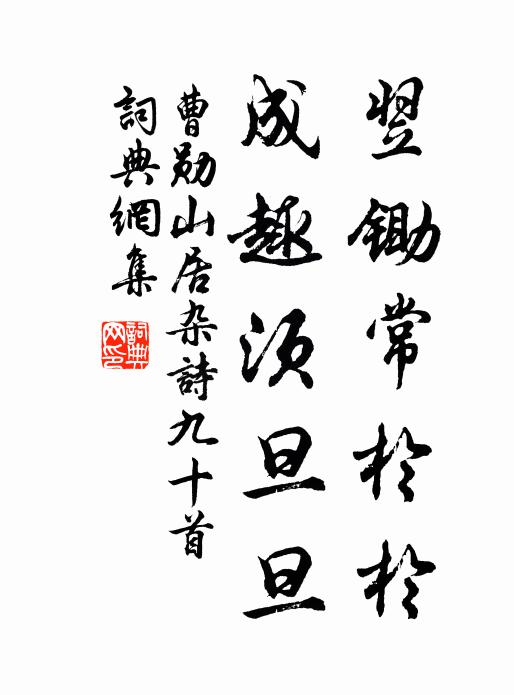 翌鋤常於於
成趣須旦旦
曹勛山居杂詩九十首
詞典網集
詞典網印